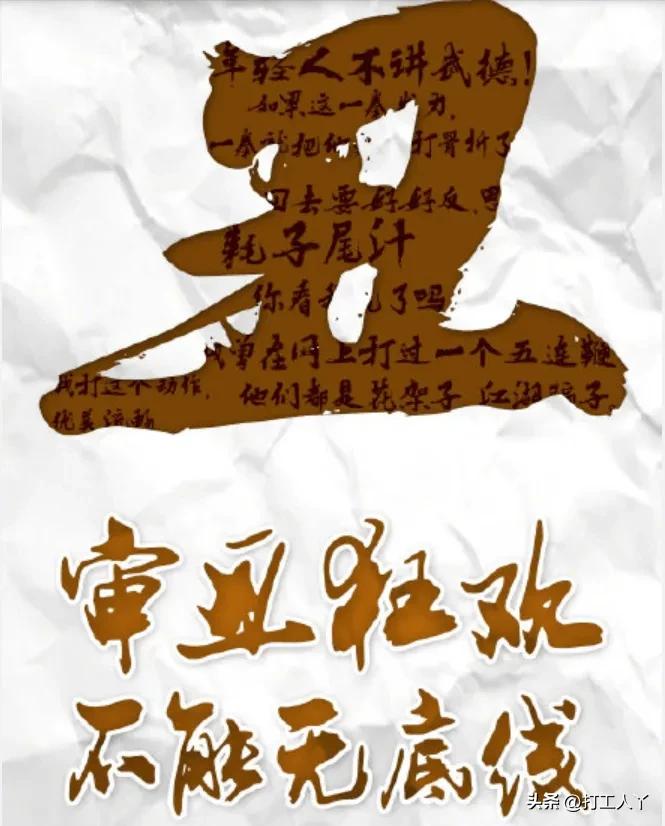 丑
年轻人不讲武德!
如果这一拳发力,
一拳就把他打骨折了
回去要好好反思
耗子尾汁
你看我了吗
我曾在网上打过一个五连鞭
我打这个动作, 他们都是花架子 江湖骗子,
优美流畅
审丑狂欢
不能无底线
头条 @打工人丫